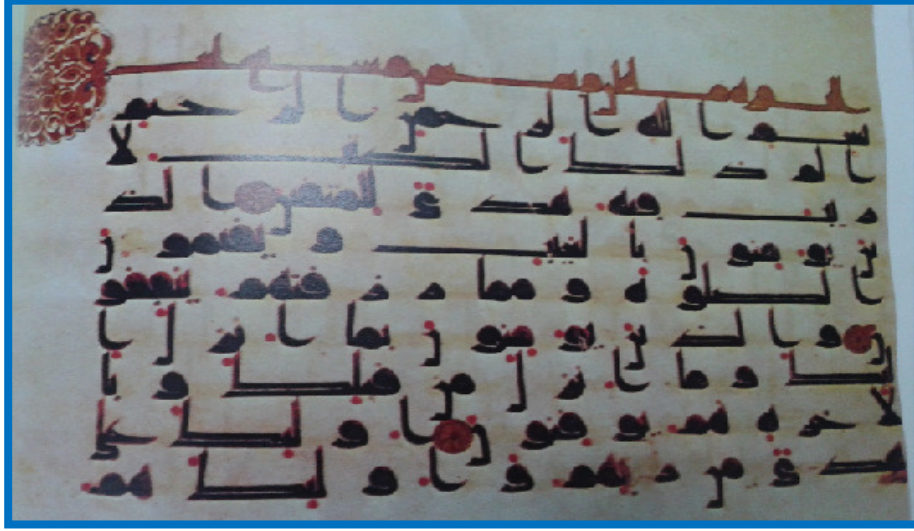 بسم الله الرحمن الرحيم
الم ذلك الكتب لا
ريب فيه هدى للمتقين الذ
ين يومنون بالغيب ويقيمون
الصلوة ومما رزقنهم ينفقو
ن والذين يومنون بما انزل ا
ليك وما انزل من قبلك وبا
لاخرة هم يوقنون اوليك على
هدى من ربهم واوليك هم